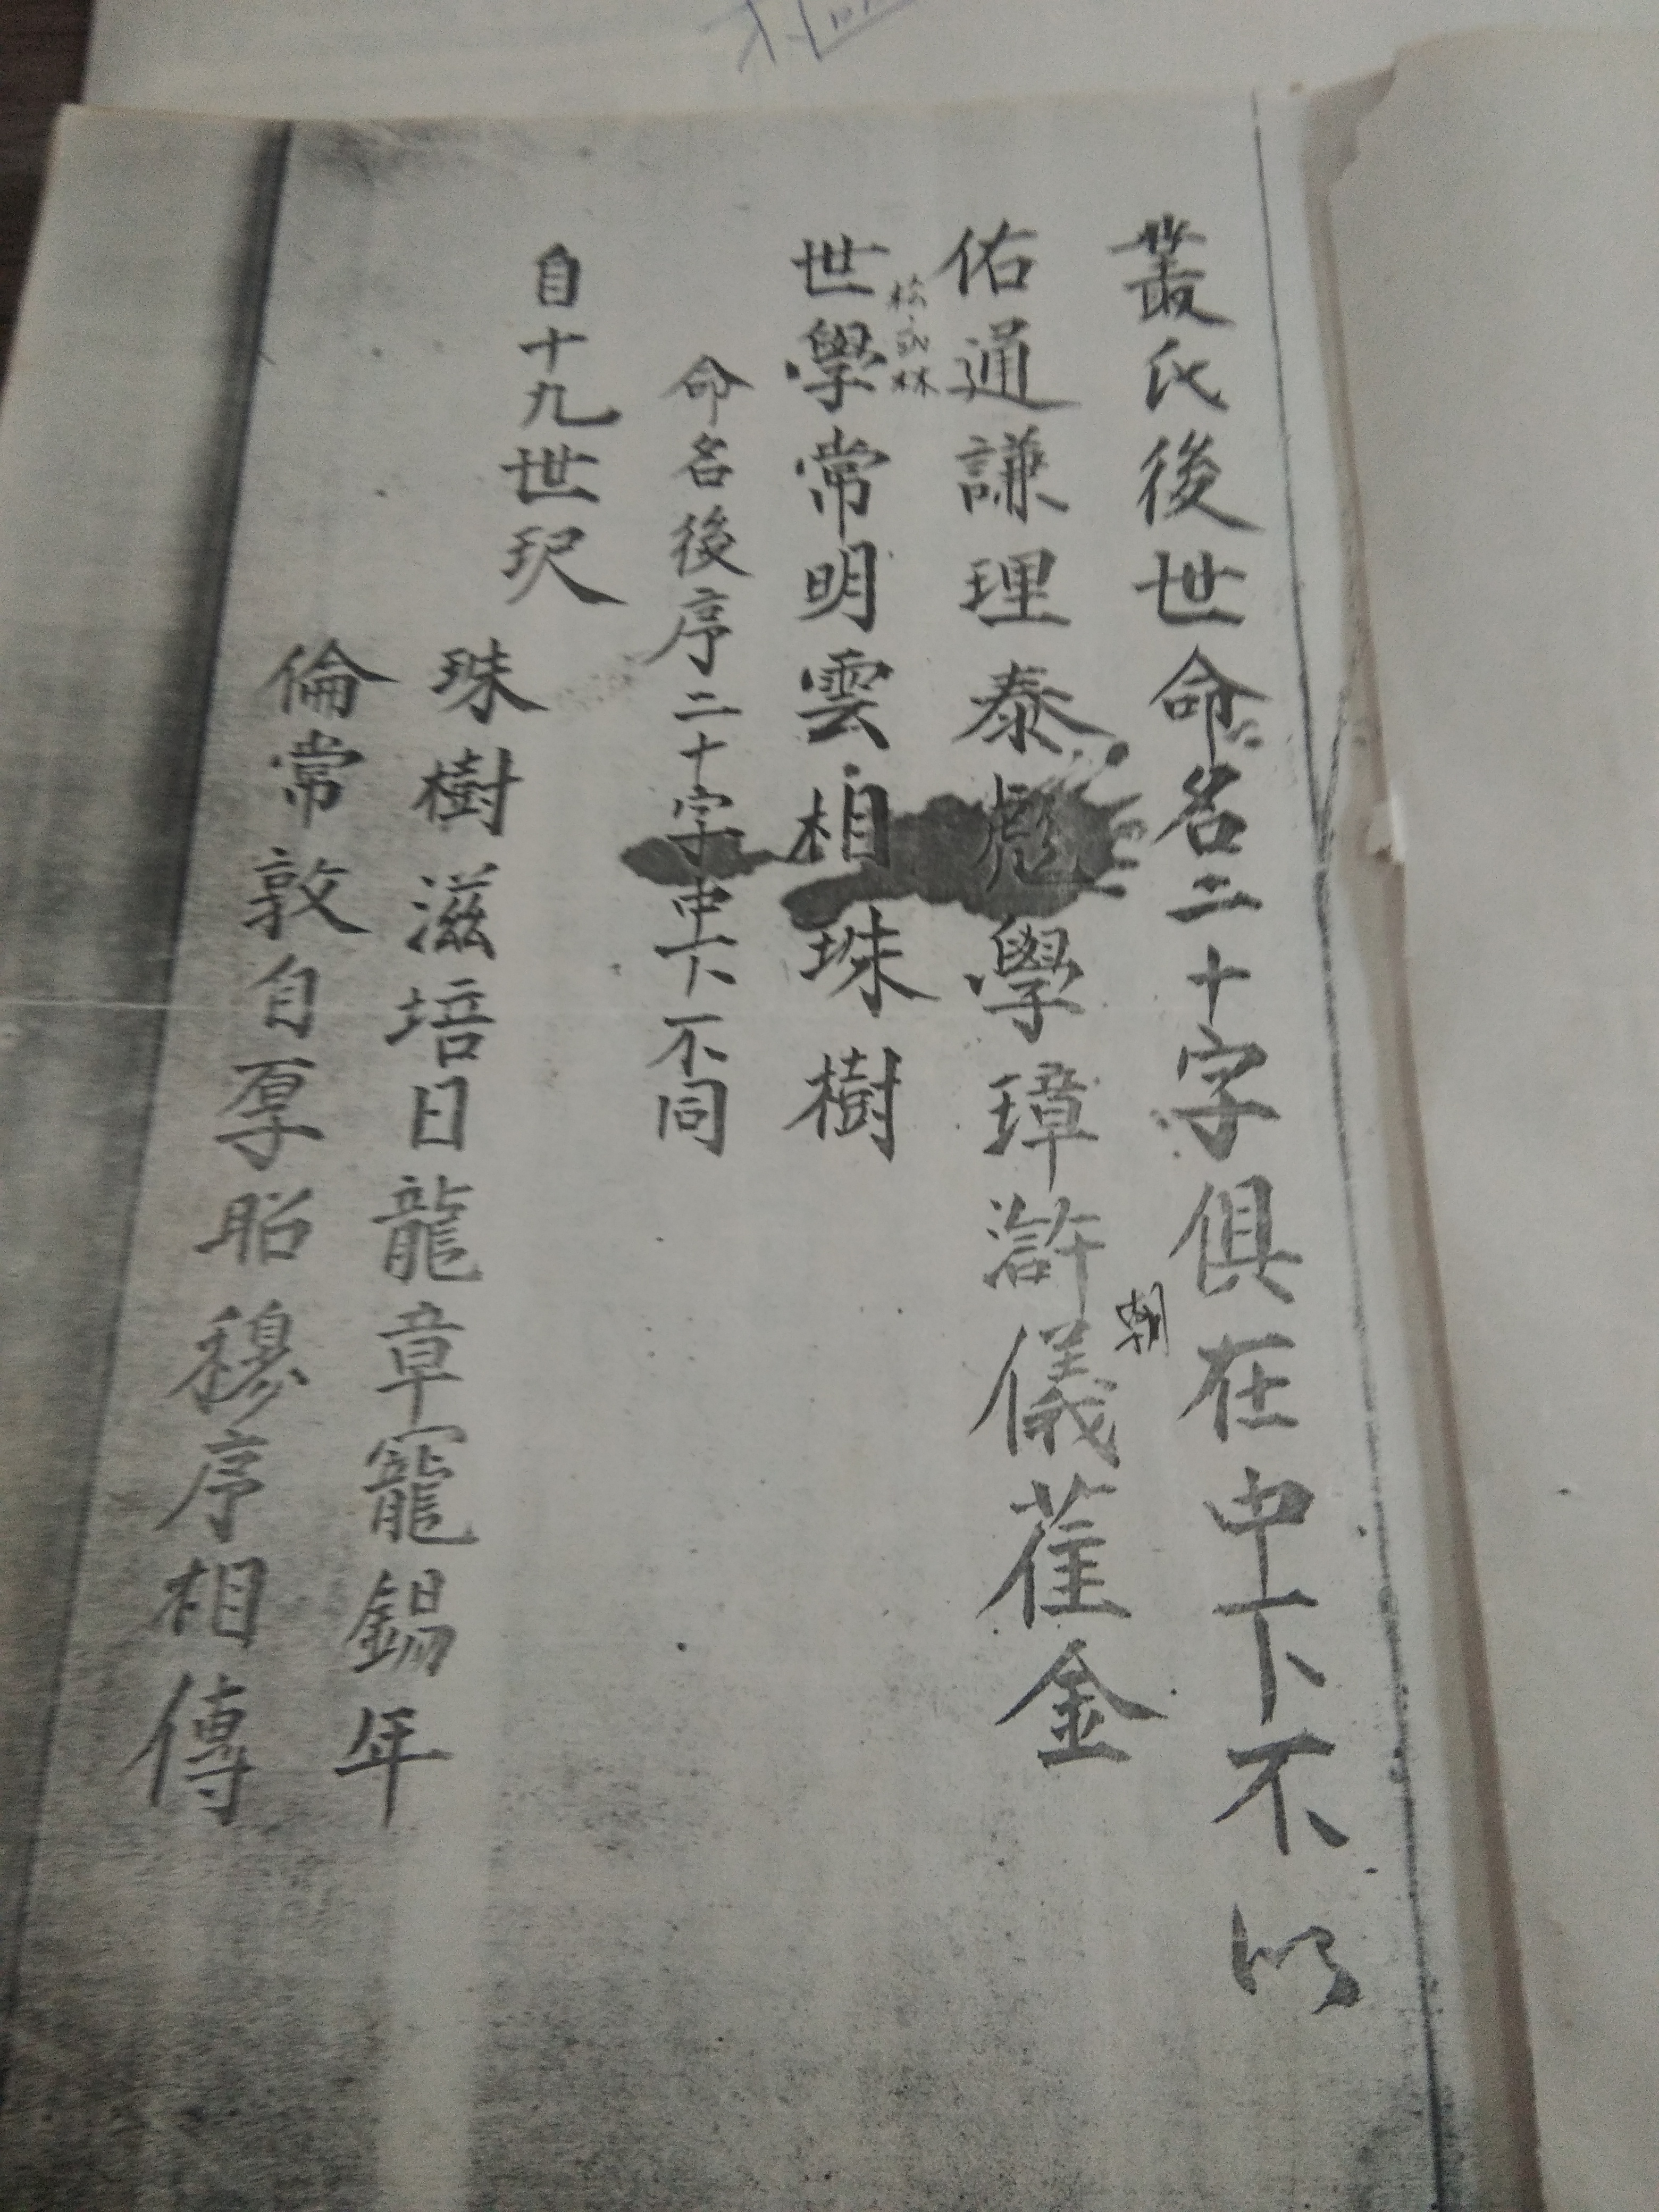 叢氏後世命名二十字俱在中下不以
朝
佑通謙理泰彪學璋滸儀萑金
林
世學常明雲相珠樹
命名後序二十字中下不同
自十九世珎
珠樹滋培日龍章寵錫年
倫常敦自厚昭穆序相傳